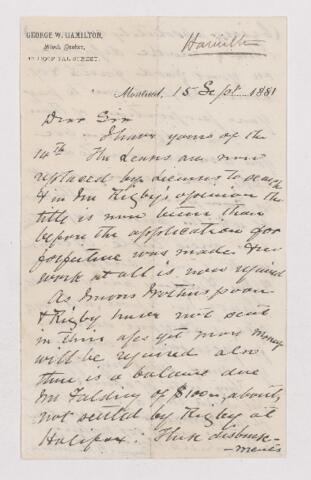 GEORGE W. HAMILTON,
Stock Broker,
Hamilton
Montreal, 15 Sept. 1881
Dear Sir
I have yours of the
14th The Leases are now
replaced by licenses to search
& in Mr Rigby's opinion the
title is now better than
before the application for
forfeiture was made. & no
work at all is now required
As
& Rigby have not sent
in their a/cs yet more money
will be required also
there is a balance due
Mr of $100.00 about
not settled by Rigby at
Halifax. These disburse-
ments